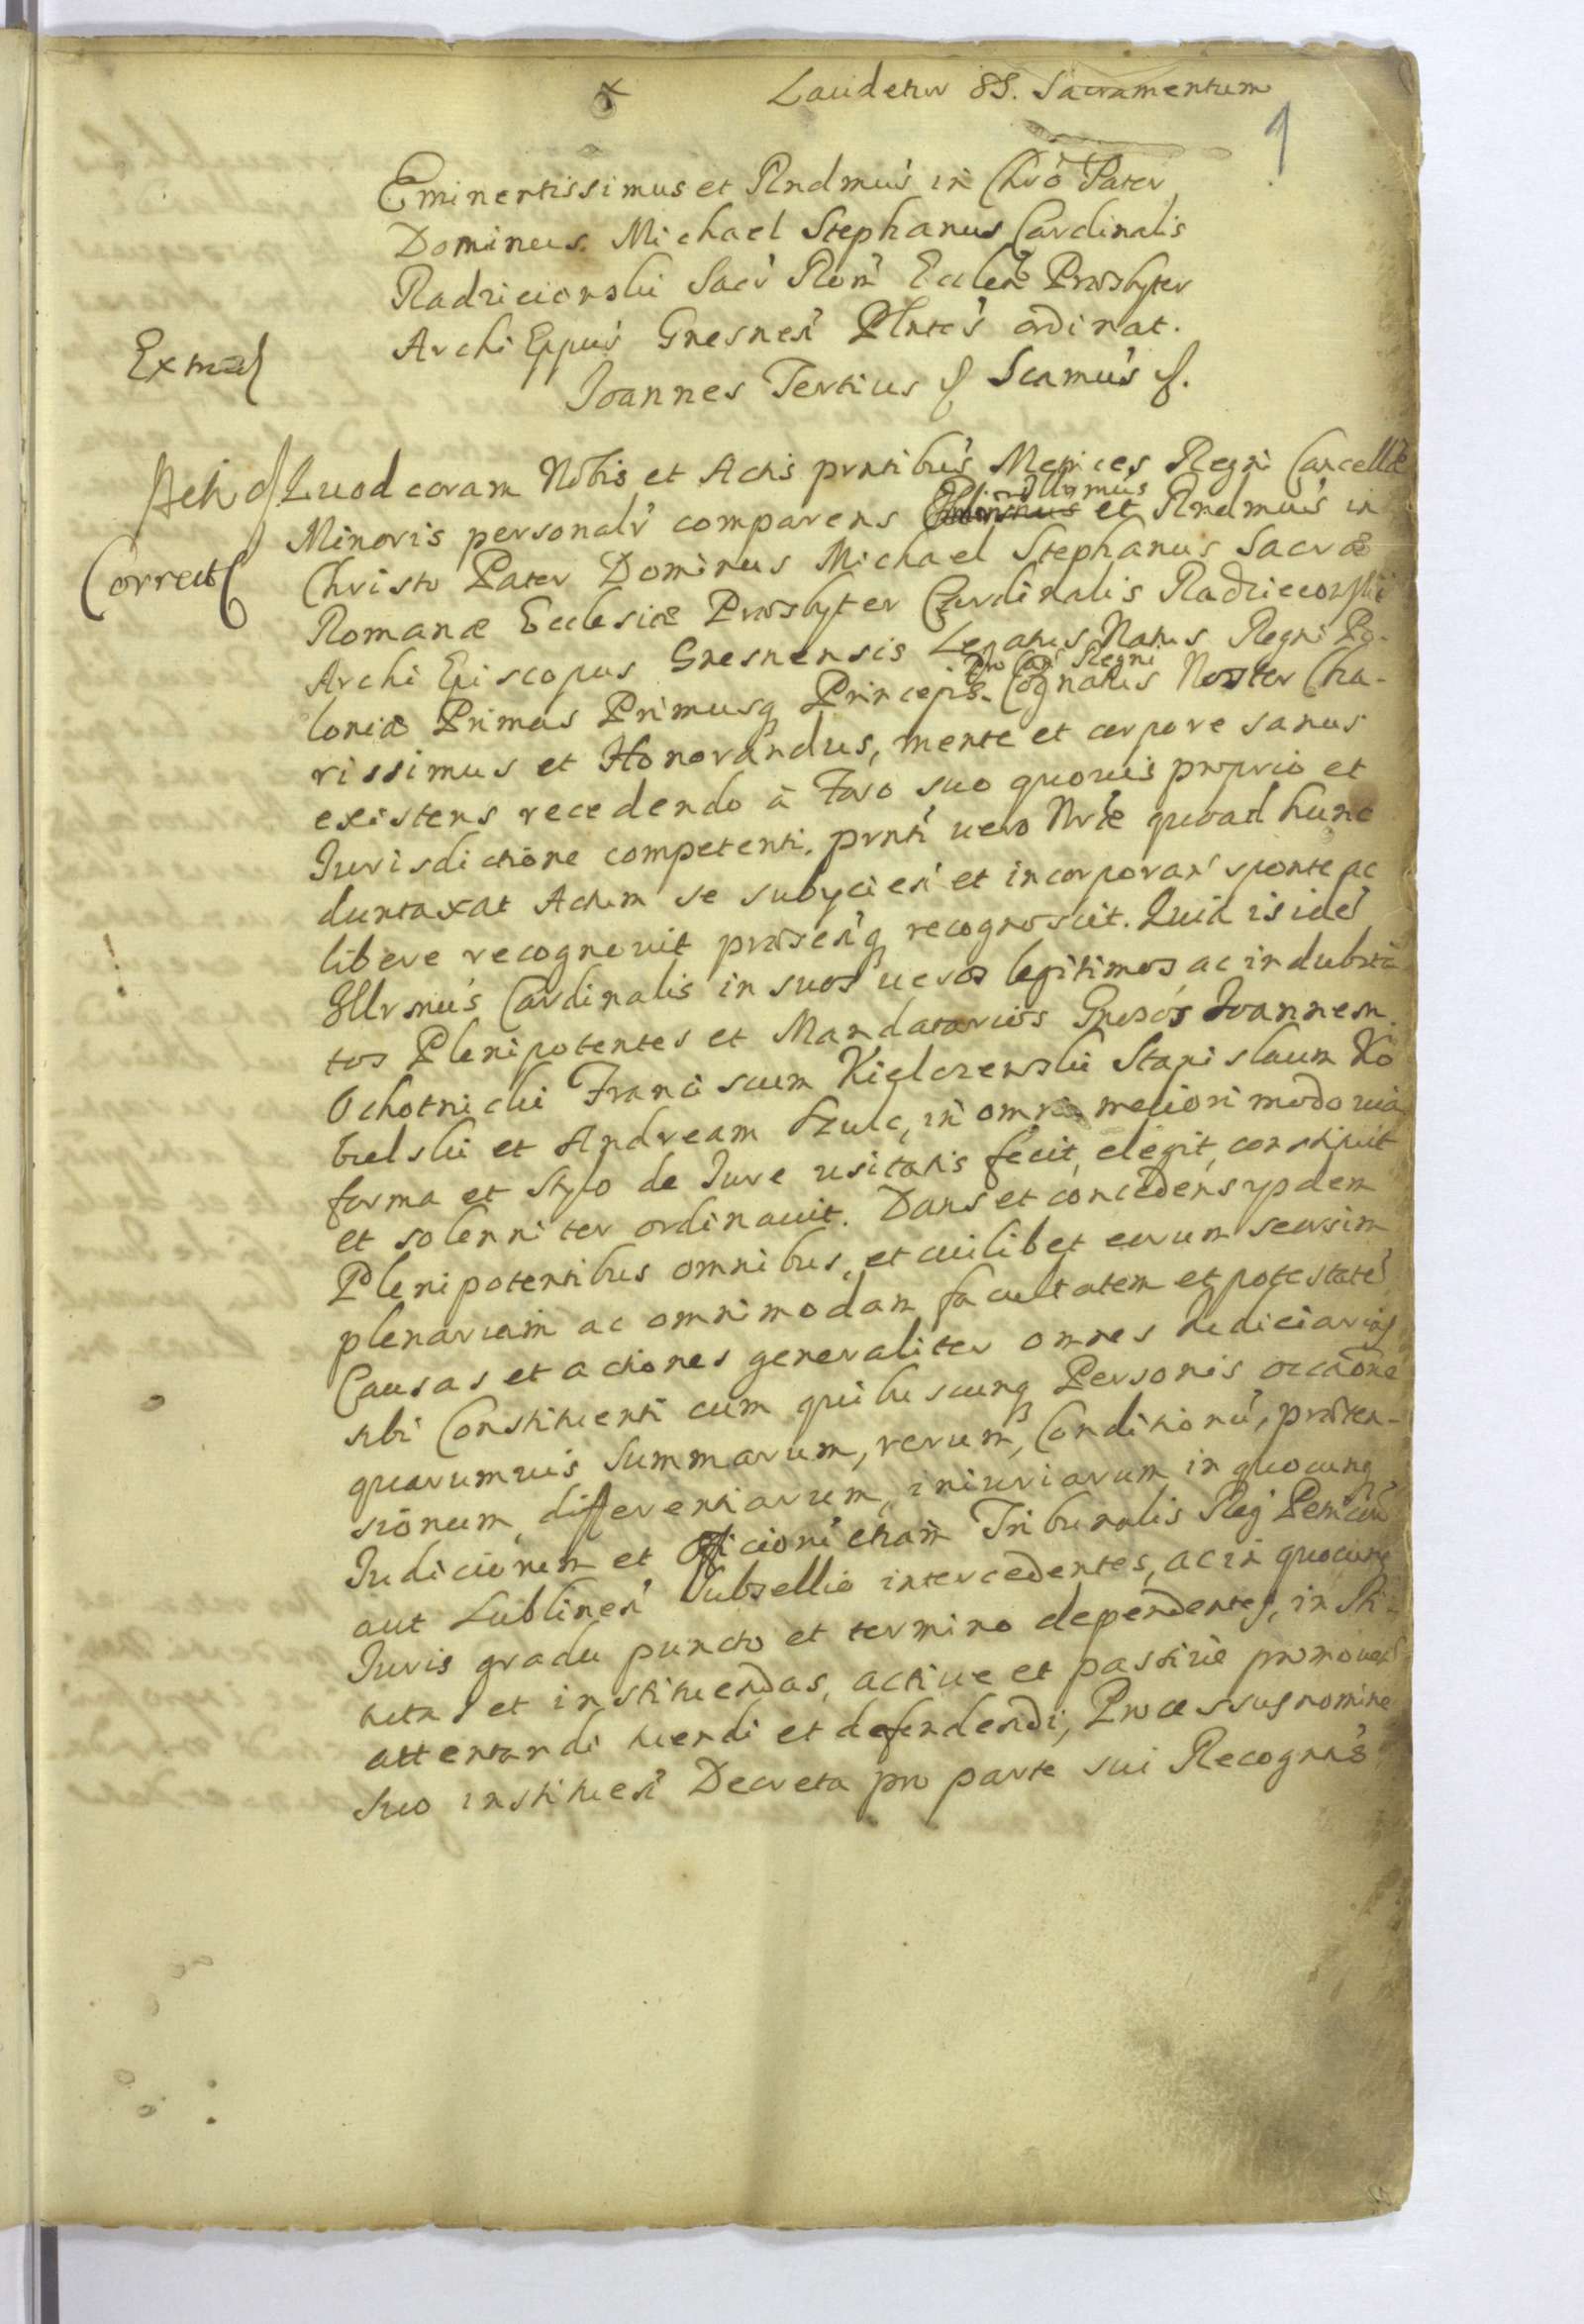 Laudetur SS. Sacramentum
1
Eminentissimus et Rndmus in Chro Pater
Dominus Michael Stephanus Cardinalis
Radzieiowski Sacr Rom Eccleae Praesbyter
Archi Eppus Gnesnen Plntes ordinat.
Joannes Tertius Scamus
Quod coram Nobis et Actis prntibus Metrices Regni Cancellae
Illrmus
Minoris personalr comparens et Rndmus in
Correct
Christo Pater Dominus Michael Stephanus Sacrae
Romanae Ecclesiae Praesbyter Cardinalis Radzieiowski
Archi Episcopus Gnesnensis Legatus Natus Regni Po-
Regni
loniae Primas Primusq Princeps Cognatus Noster Cha-
rissimus et Honorandus, mente et corpore sanus
existens recedendo à Foro suo quouis proprio et
Jurisdictione competenti, prnti uero Nrae quoad hunc
duntaxat Actum se subycien et incorporan sponte ac
libere recognouit praesenq recognoscit. Quia is ide
Illrmus Cardinalis in suos ueros legitimos ac indubita
tos Plenipotentes et Mandatarios Gnosos Joannem
Ochotnicki Franciscum Kielczewski Stanislaum Ko
bielski et Andream Szulc, in omni meliori modo uia
forma et stylo de Jure usitatis fecit, elegit, constituit
et solenniter ordinauit. Dans et concedens ypdem
Plenipotentibus omnibus, et cuilibet eorum seorsim
plenariam ac omnimodam facultatem et potestate
Causas et actiones generaliter omnes Judiciarias
sibi Constituenti cum quibuscunq Personis occaone
quarumuis Summarum, rerum, Conditionu, praeten-
sionum, differentiarum, iniuriarum in quocunq
Judiciorum et Officioru etiam Tribunalis Reg
aut Lublinen Subsellio intercedentes, ac in quocunq
Juris gradu puncto et termino dependentes, insti-
tutas et instituendas, actiue et passiue promouen
attentandi tuendi et defendendi, Processus nomine
suo instituen Decreta pro parte sui Recognis